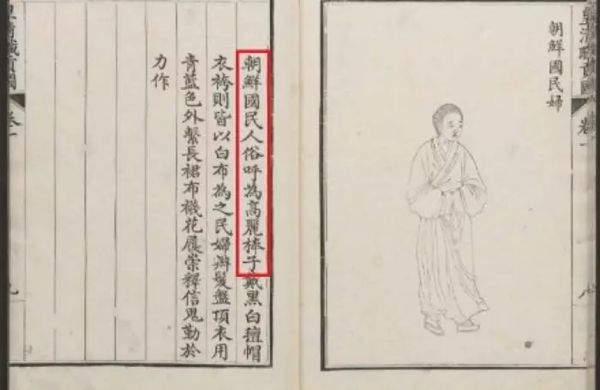 朝鮮國民婦
朝鮮國民人俗呼為高麗棒子戴黑白氊帽
衣袴則皆以白布為之民婦辮髮盤頂衣用
青藍色外繫長裙布襪花履崇釋信鬼勤於
力作
皇清職貢圖 卷一 九